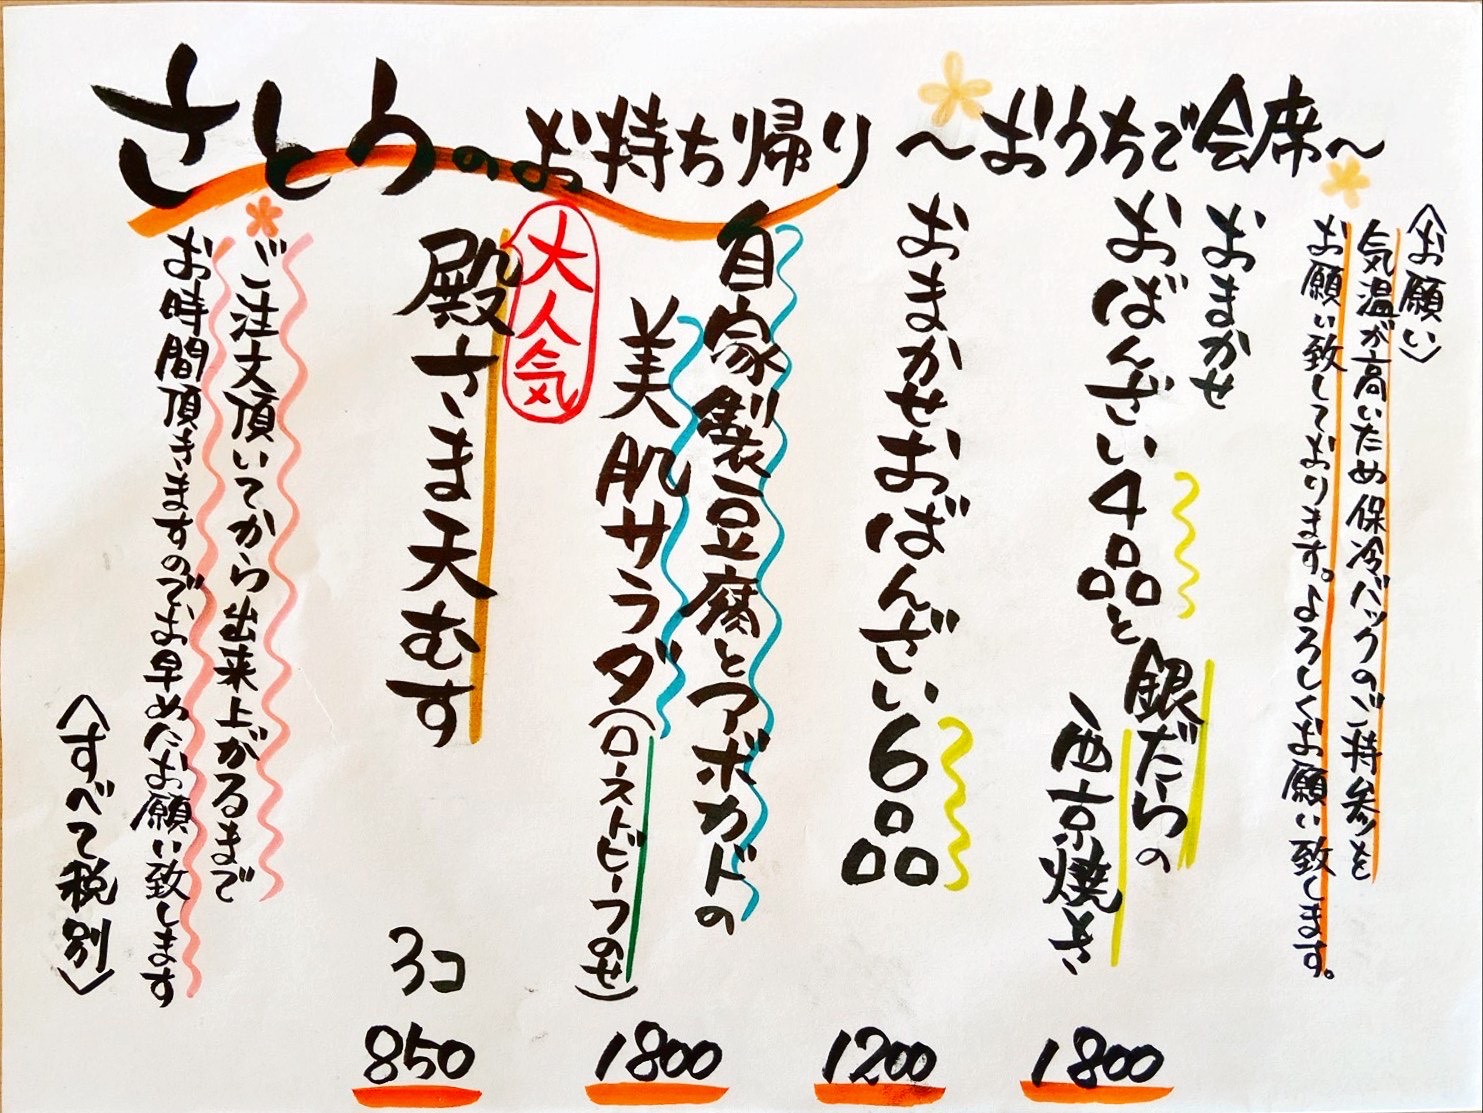 さとうのお持ち帰り 〜おうちで会席〜
〈お願い〉
気温が高いため保冷バックのご持参を
お願い致しております。よろしくお願い致します。
おまかせ
おばんざい4品と
銀だらの
西京焼き
1800
おまかせおばんざい6品
1200
自家製豆腐とアボカドの
美肌サラダ(ローストビーフのせ)
1800
大人気
殿さま天むす
3コ
850
ご注文頂いてから出来上がるまで
お時間頂きますのでお早めにお願い致します
〈すべて税別〉